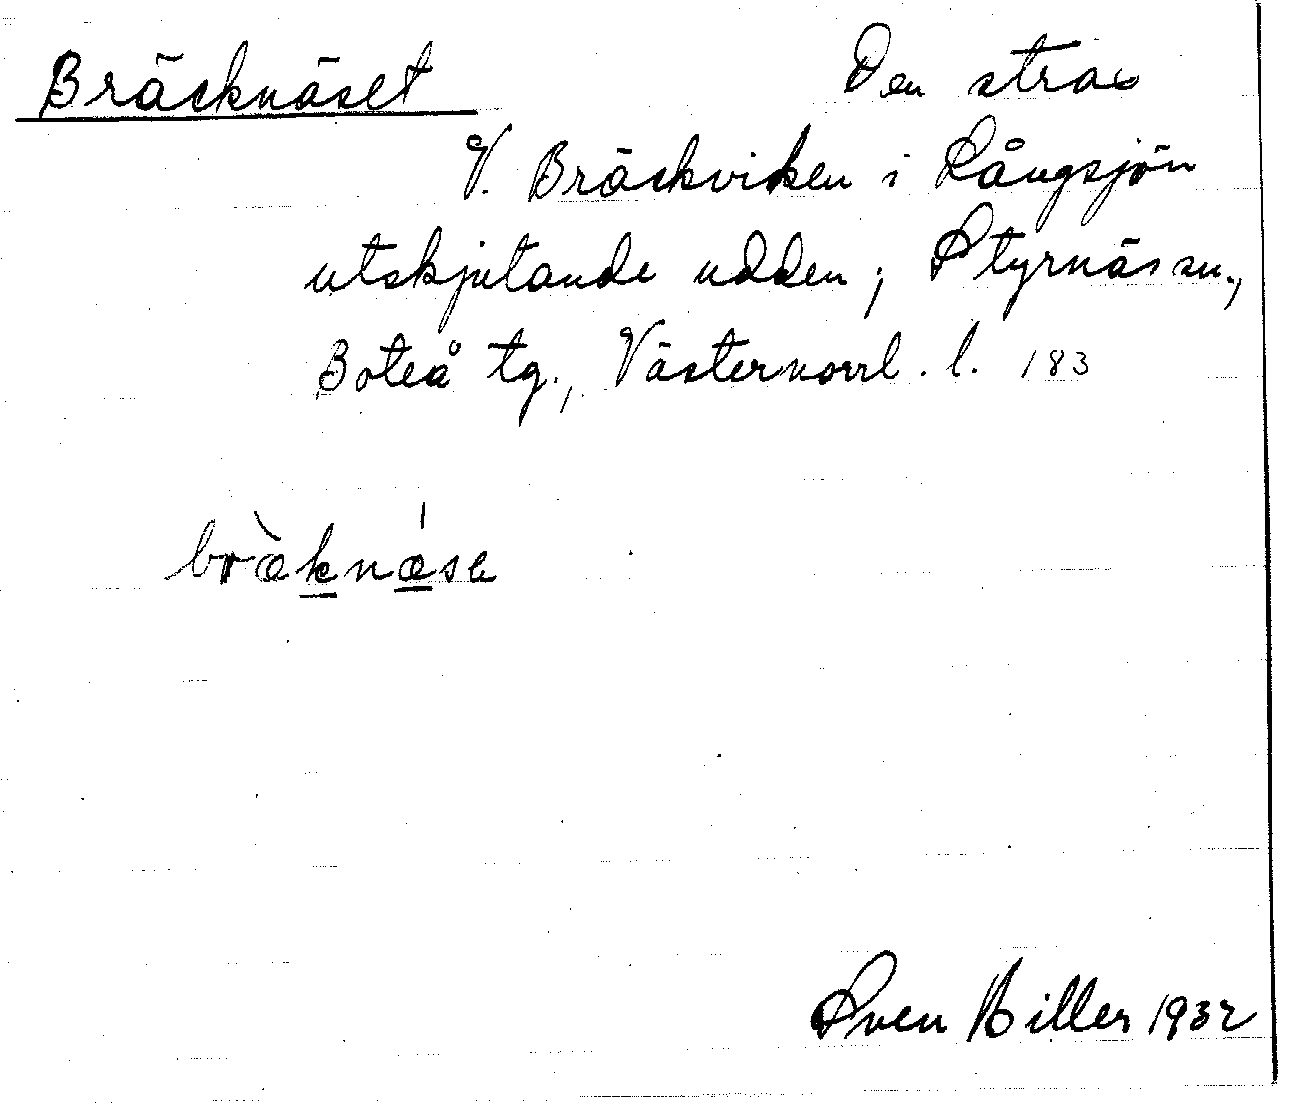 Bräcknäset Den strax
V. Bräckviken i Långsjön
utskjutande udden; Styrnäs sn.,
Boteå tg., Västernorrl. l. 183
bràknáse
Sven Biller 1932